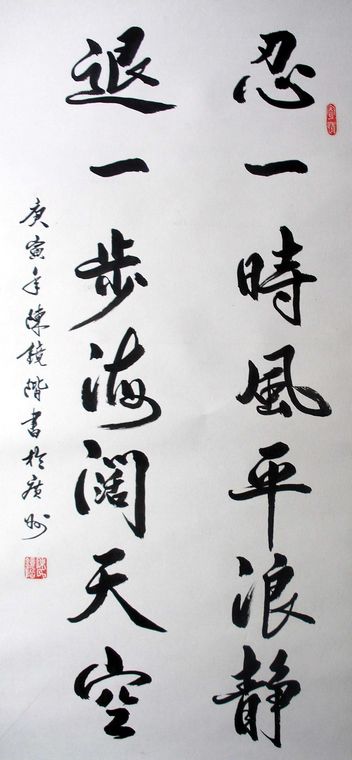 忍一時風平浪静
退一步海阔天空
庚寅年陳鏡階書於廣州